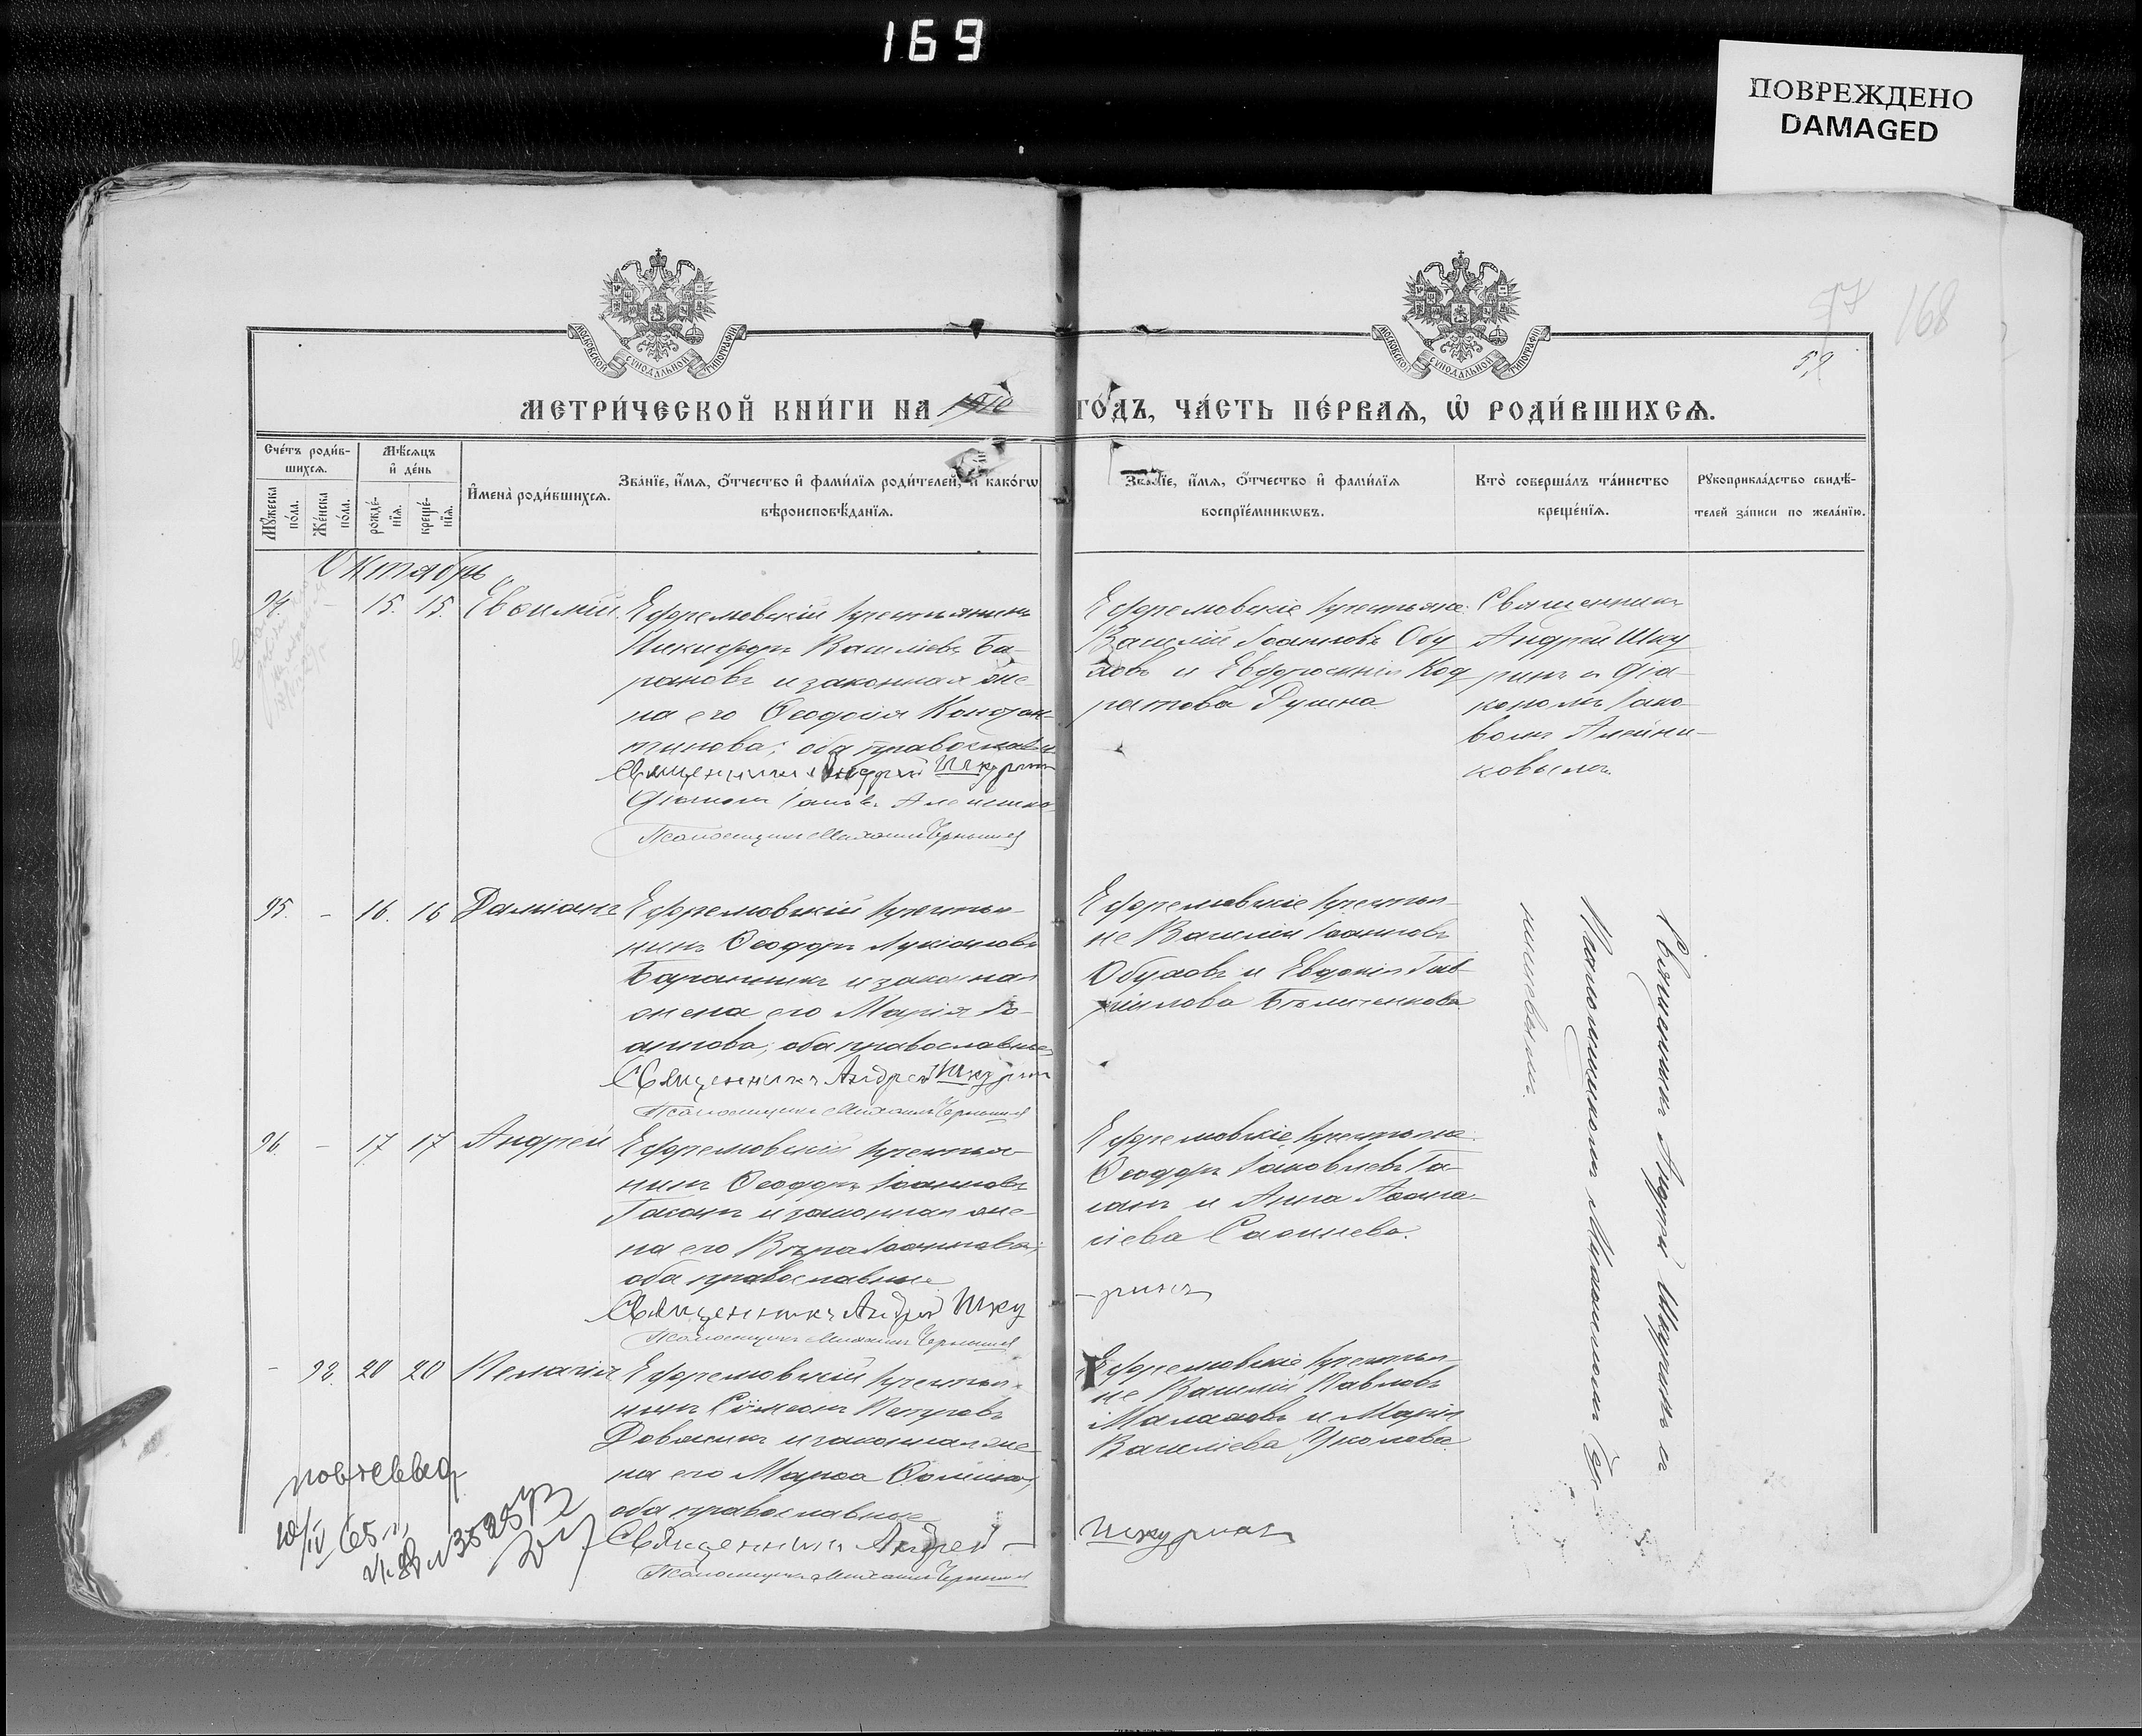 169
ПОВРЕЖДЕНО
DAMAGED
97 168
59
МОСКОВСКОЙ СУНОДАЛЬНОЙ ТИПОГРАФІИ
МОСКОВСКОЙ СУНОДАЛЬНОЙ ТИПОГРАФІИ
МЕТРИ́ЧЕСКОЙ КНИ́ГИ НА 1910 ГО́ДЪ, ЧА́СТЬ ПЕ́РВАѦ, Ѡ҆ РОДИ́ВШИХСѦ.
Сче́тъ роди́в-
шихсѧ.
Мꙋ́жеска по́ла.
Же́нска по́ла.
Мѣ́сѧцъ
и҆ де́нь
рожде́-
нїѧ.
креще́-
нїѧ.
И҆мена̀ роди́вшихсѧ.
Зва́нїе, и҆́мѧ, ѻ҆́тчество и҆ фами́лїѧ роди́телей, и҆ како́гѡ
вѣроисповѣ́данїѧ.
Зва́нїе, и҆́мѧ, ѻ҆́тчество и҆ фами́лїѧ
воспрїе́мникѡвъ.
Кто̀ соверша́лъ та́инство
креще́нїѧ.
Рꙋкоприкла́дство свидѣ́-
телей за́писи по жела́нїю.
Октябрь
94. - 15. 15. Евѳимій.
Ефремовскій крестьянинъ
Никифоръ Василіевъ Ба-
рановъ и законная же-
на его Ѳеодосія Констан-
тинова; оба православн.
Священникъ Андрей Шкуринъ
Діаконъ Іаковъ Алейнико
Псаломщикъ Михаилъ Чернышев
Ефремовскіе крестьяне
Василій Іоанновъ Обу
ховъ и Евфросинія Код
ратова Рунина
Священникъ
Андрей Шку
ринъ и діа-
кономъ Іако
вомъ Алейни-
ковымъ.
95. - 16. 16 Даміанъ
Ефремовскій крестья-
нинъ Ѳеодоръ Лукіановъ
Баранникъ и законная
жена его Марія Іо-
аннова; оба православные
Священникъ Андрей Шкурин
Псаломщикъ Михаилъ Чернышев
Ефремовскіе крестья-
не Василій Іоанновъ
Обуховъ и Евдокія Гав-
ріилова
Священникъ Андрей Шкуринъ и
Псаломщикомъ Михаиломъ Чер-
нышевымъ.
96. - 17 17 Андрей
Ефремовскій крестья-
нинъ Ѳеодоръ Іоанновъ
и законная же-
на его Вѣра Іоаннова;
оба православные
Священникъ Андрей Шку
-ринъ
Псаломщикъ Михаилъ Чернышев
Ефремовскіе крестьяне
Ѳеодоръ Іаковлевъ Га-
и Анна Аѳана-
сіева
- 92. 20 20 Пелагія
Ефремовскій крестья-
нинъ Сѵмеонъ Петровъ
Довжикъ и законная же-
на его Марѳа Ѳомина;
оба православные
Священникъ Андрей -
Шкуринъ
Псаломщикъ Михаилъ Чернышев
Ефремовскіе крестья-
не Василій Павловъ
Малаховъ и Марія
Василіева
10/IV 65 г.